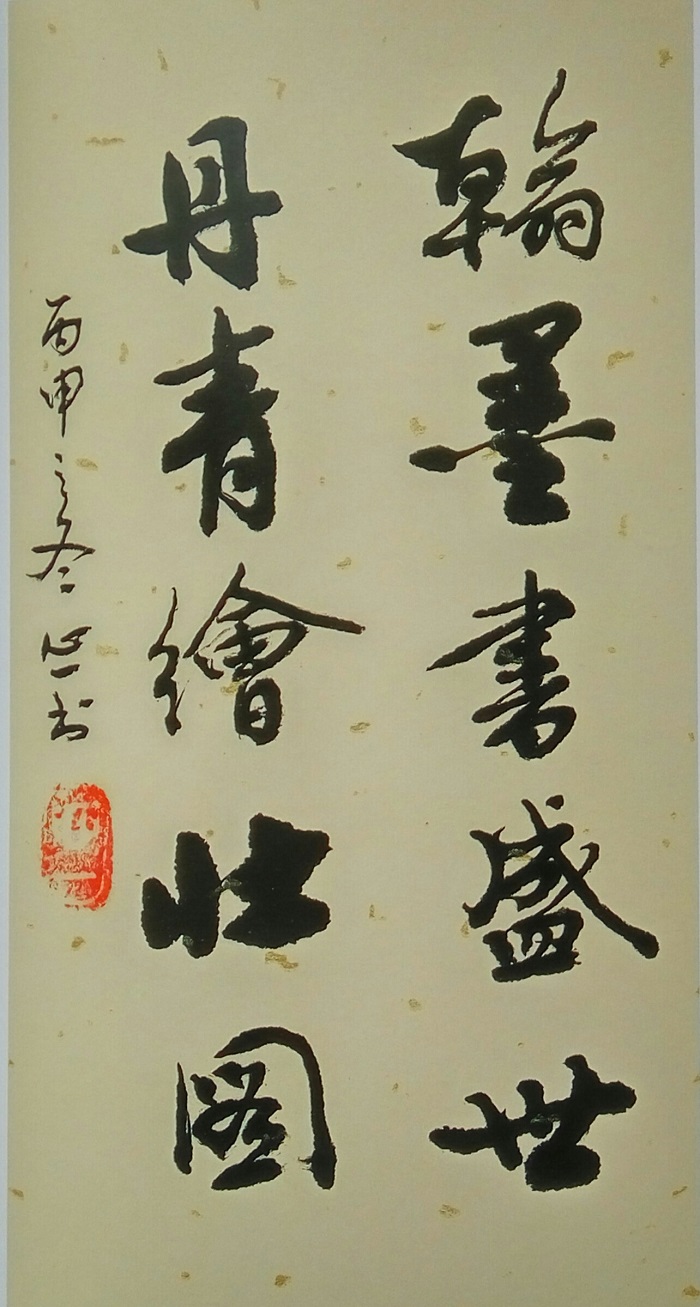 翰墨書盛世
丹青繪壯圖
丙申之冬